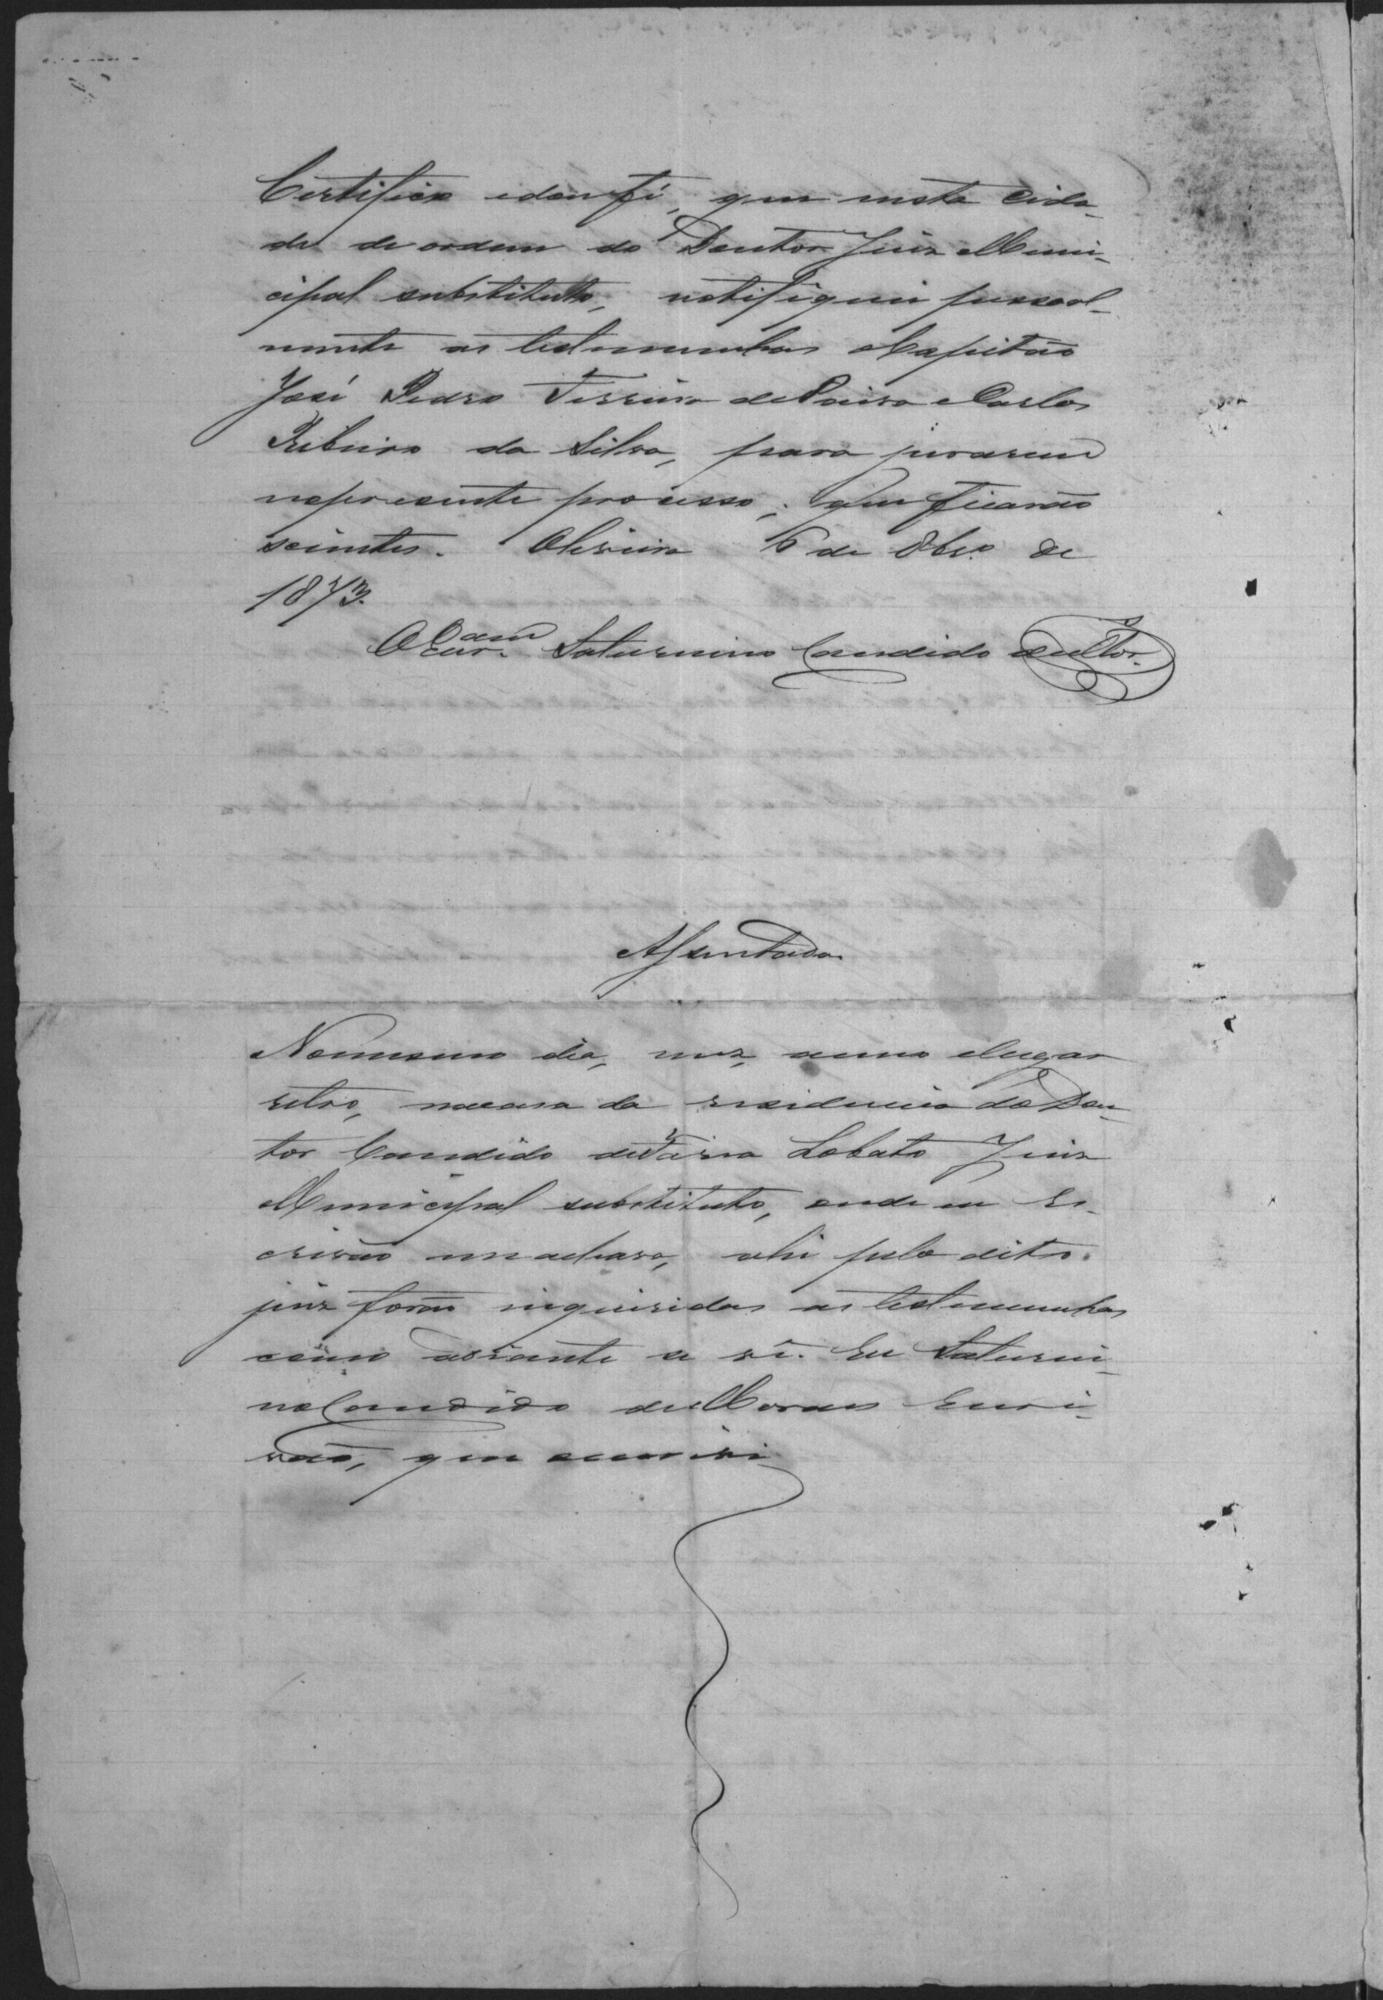 Certifico edou fé, que nesta Cida-
de de ordem do Doutor Juiz Muni-
cipal substituto, notifiquei pessoal-
mente as testemunhas Capitão
José Pedro Ferreira de Paiva e Carlos
Ribeiro da Silva, para jurarem
no presente processo; que ficarão
scientes. Oliveira 6 de 8brº de
1873.
O Escram Saturnino Candido de Mor.
Assentada
No mesmo dia, mez, anno elugar
retro, na casa da residencia do Dou-
tor Candido de Faria Lobato Juiz
Municipal substituto, onde eu Es-
crivão me achava, ahi pelo dito
juiz forão inquiridas as testemunhas
como adiante se vê. Eu Saturni-
no Candido de Moraes Escri-
vão, que escrevi